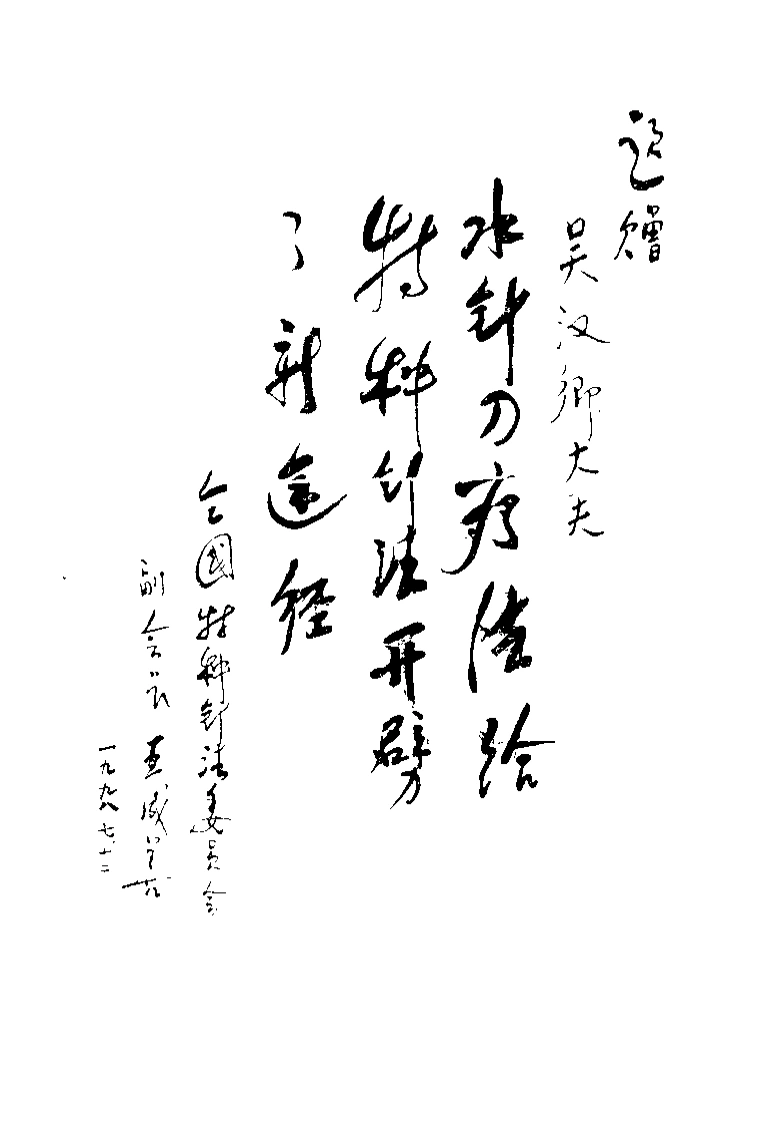 题赠
吴汉卿大夫
水针刀疗法给
特种针法开劈
了新途经
全国特种针法委员会
副会长 王成
一九九八七、十二